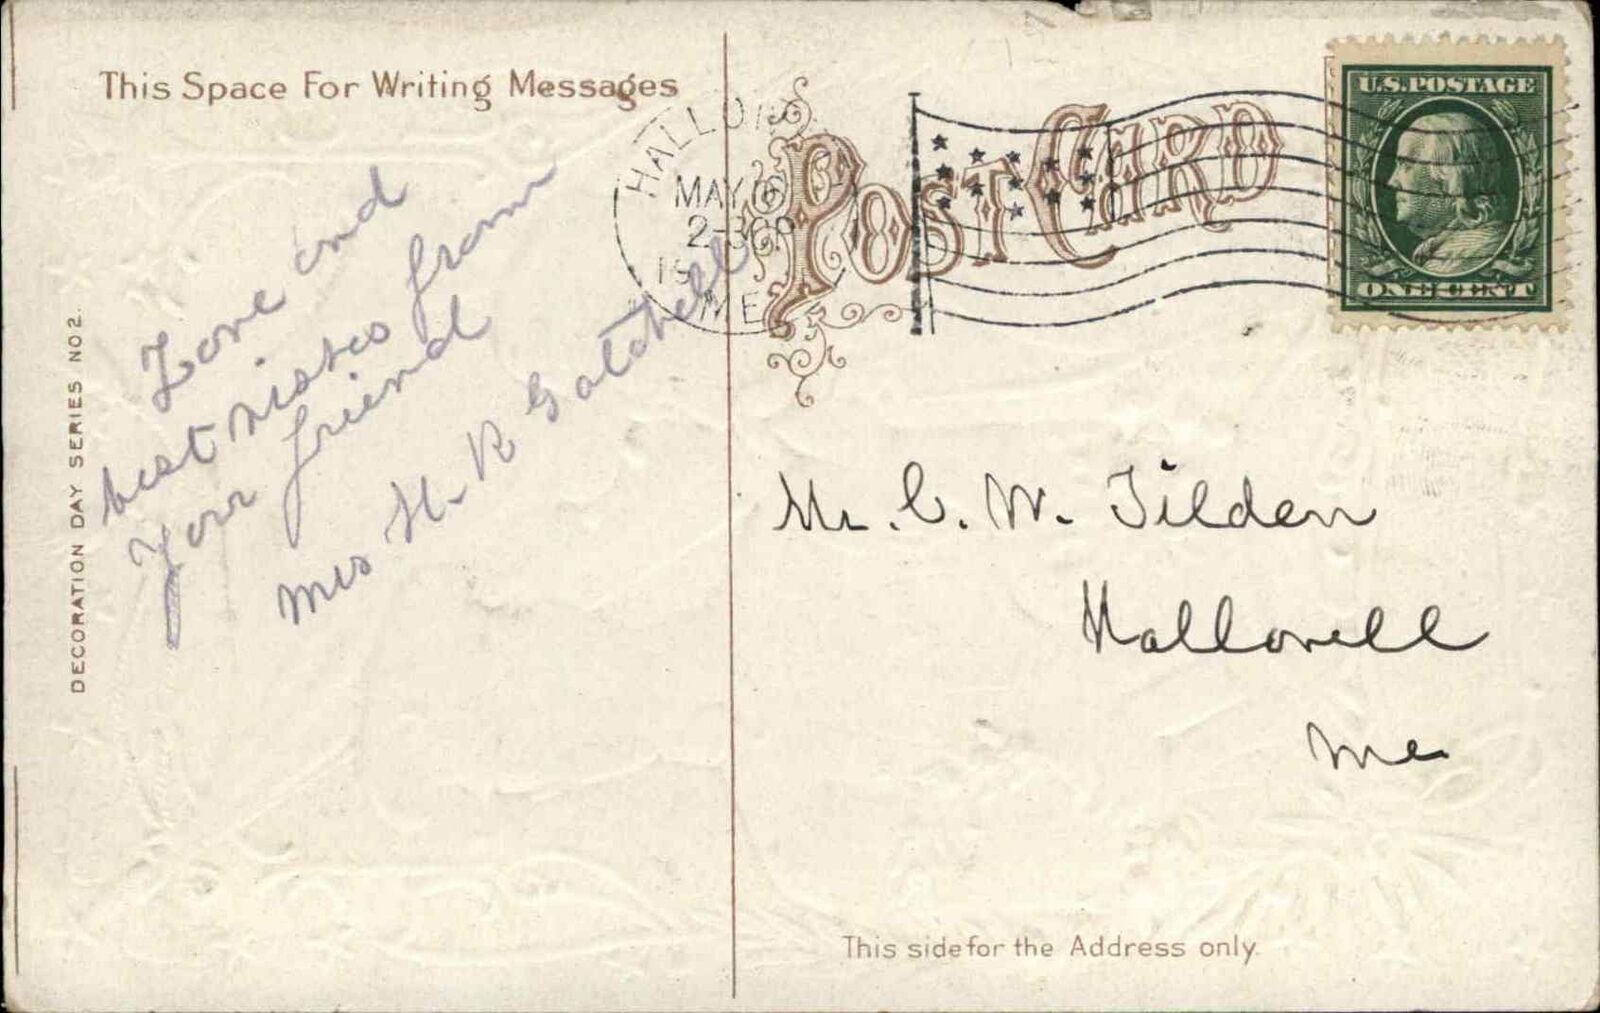 This Space For Writing Messages
Love and
best wishes from
Your friend
Mrs H. R Gatchell
DECORATION DAY SERIES NO 2.
MAY
2-30P
ME
POST CARD
U.S. POSTAGE
ONE CENT
Mr. C. W. Tilden
Hallowell
Me
This side for the Address only.